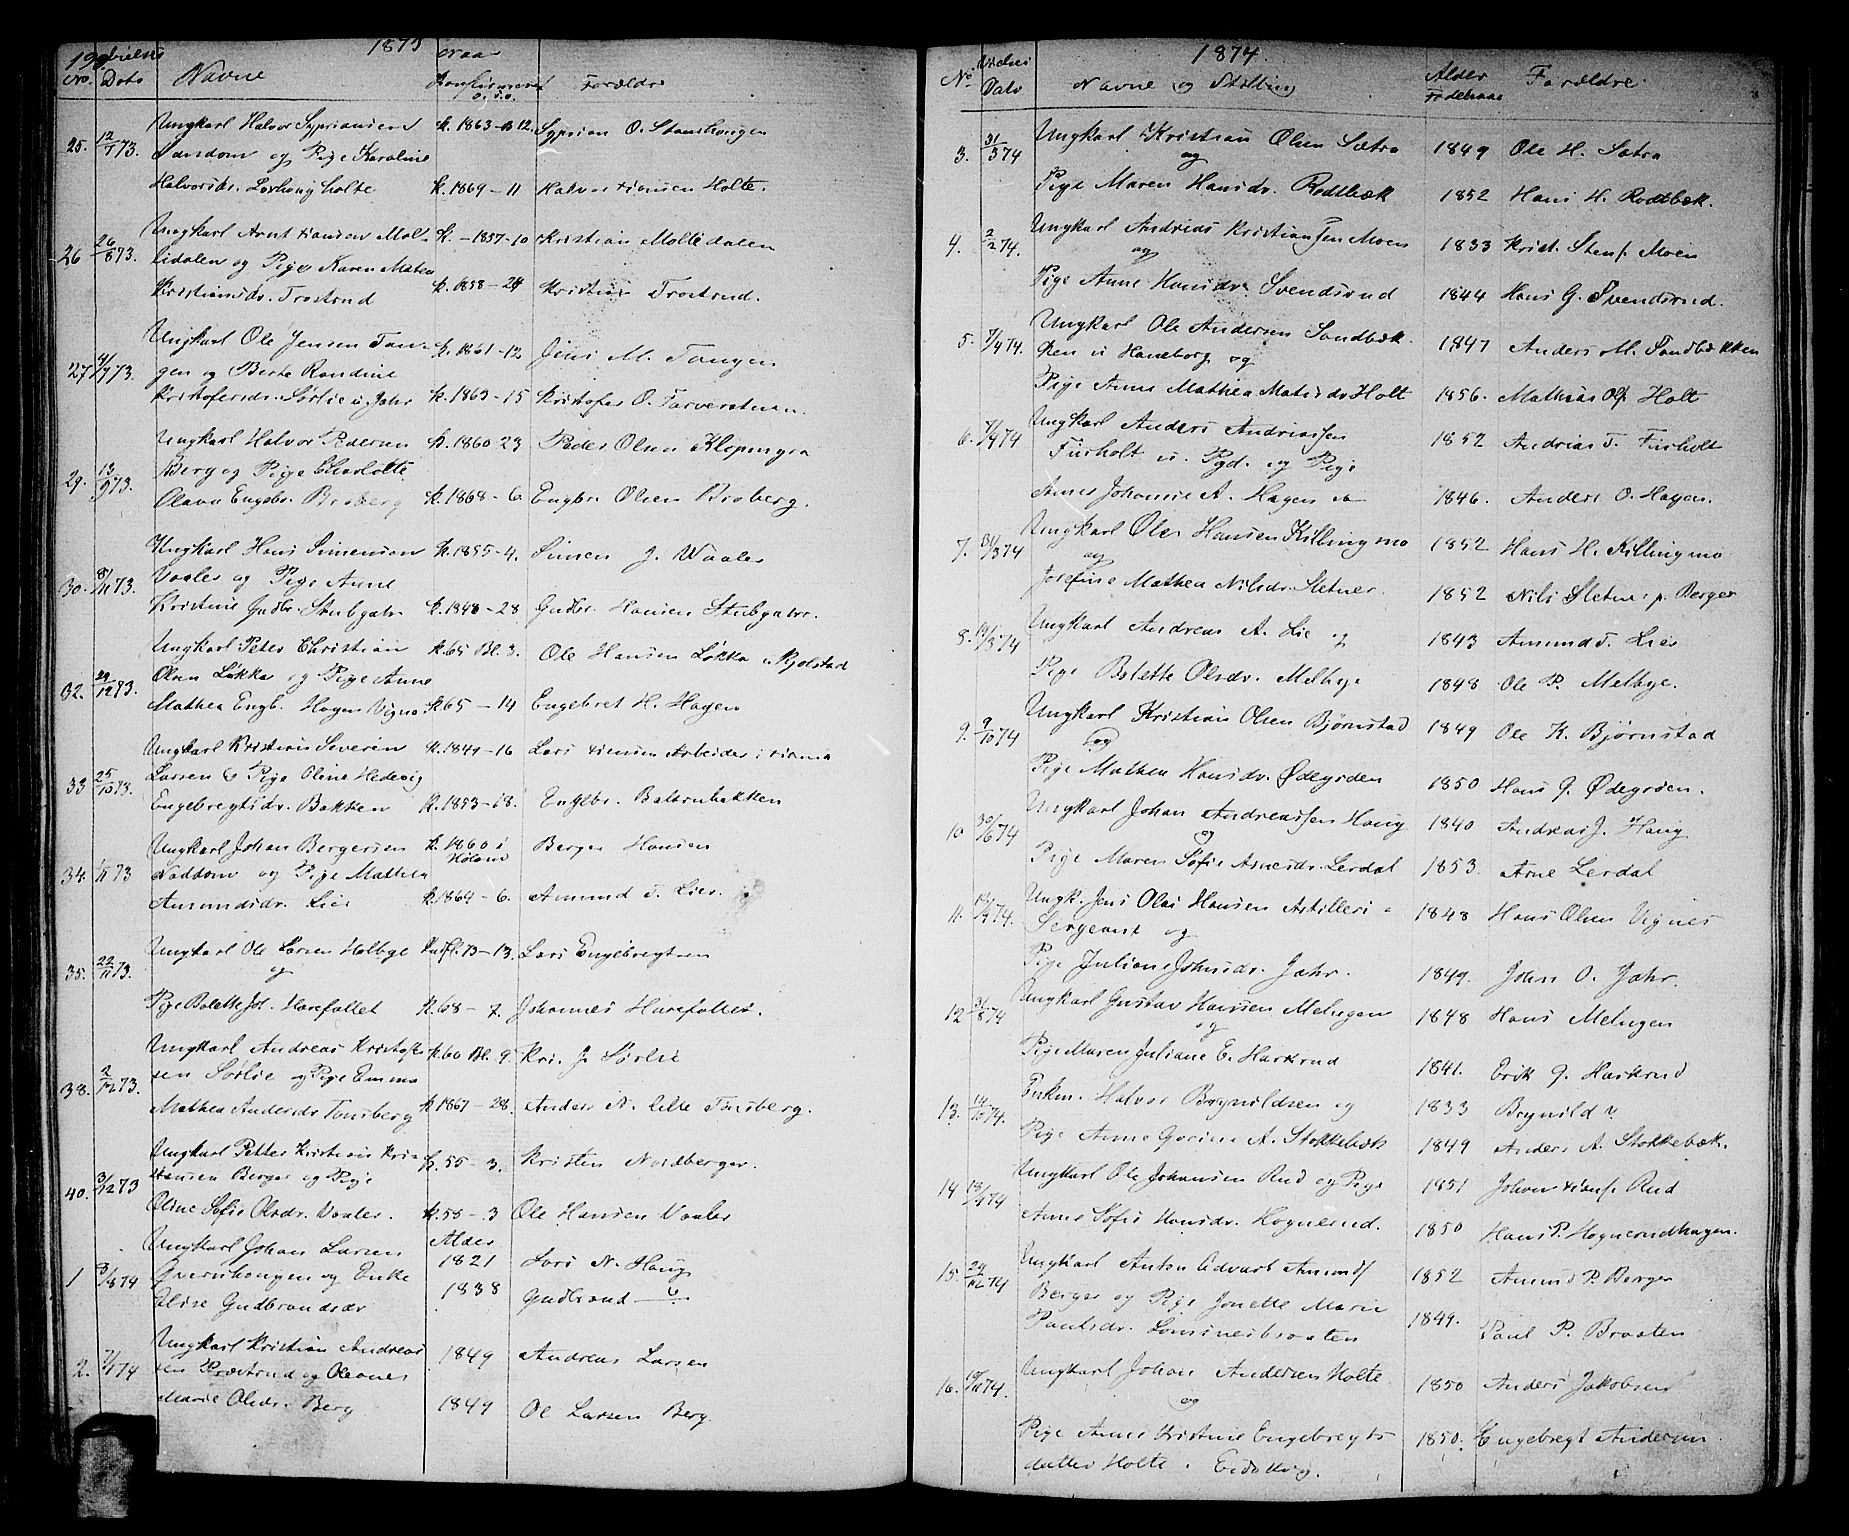 1873
No. Dato Navne Konfirmeret Forældre
25. 12/7 73. Ungkarl Halvor Syprianssen k. 1863-B 12. Syprian O.
Sandom og Pige Karoline
Halvorsdr. holte k. 1869-11 Halvor Holte.
26 26/8 73. Ungkarl Arnt Mol- k.-1857-10 Kristian Mollidalen
lidalen og Pige Karen Mathea
Kristiansdr. Trostrud k. 1858-24 Kristian Trostrud.
27 4/7 73. Ungkarl Ole Jensen Tan- k. 1861-12 Jens M. Tangen
gen og Berte Randine
Kristofersdr. Sørlie u. Jahr k. 1863-15 Kristofer O.
29. 13/9 73. Ungkarl Halvor Pedersen k. 1860-23 Peder Olsen Klopengra
Berg og Pige Charlotte
Olava Engebr. Broberg k. 1868-6. Engbr. Olsen Broberg.
30. 8/11 73. Ungkarl Hans Simensen k. 1855-4. Simen J. Waaler
Vaaler og Pige Anne
Kristine Gudbr. Stubgabr. k. 1848-28 Gudbr. Hansen Stubgabr.
32. 29/12 73. Ungkarl Peter Christian k. 65 Bl. 3. Ole Hansen Løkka u. Kjolstad
Olsen Løkka og Pige Anne
Mathea Engb. Hagen Vignes k. 65-14 Engebret H. Hagen
33 25/10 73. Ungkarl Kristian Severin k. 1849-16 Lars Arbeider i
Larsen & Pige Oline Hedevig
Engebregtsdr. Bakken k. 1853-18. Engebr. Balternbakken
34. 1/11 73 Ungkarl Johan Bergersen k. 1860 i Høland Berger Hansen
Naddom og Pige Mathea
Amundsdr. Lier k. 1864-6. Amund T. Lier.
35. 22/11 73. Ungkarl Ole Larsen Holbye 73-13. Lars Engebregtsen
og
Pige Bolette Joh. Harefallet k. 68-7. Johannes Harefallet.
38. 2/12 73. Ungkarl Andreas Kristofer k. 60 Bl. 9. Kri. J. Sørlie
sen Sørlie og Pige Emma
Mathea Andersdr Tonsberg k. 1867-28. Anders N. lille Tonsberg.
40. 3/12 73 Ungkarl Petter Kristian Kris k. 55-3. Kristen Nordberger.
tiansen Berger og Pige
Oline Sofie Olsdr. Vaaler. k. 58-3 Ole Hansen Vaaler
Alder
1 3/8 74 Ungkarl Johan Larsen 1821 Lars N. Haug
Qvernhaugen og Enke
Elise Gudbrandsdr 1838 Gudbrand
2. 7/1 74 Ungkarl Kristian Andreas 1849 Andreas Larsen
sen Præstrud og Oleane
Marie Olsdr. Berg 1849 Ole Larsen Berg.
1874.
No. Vielses Dato Navne og Stilling Alder Fødelsaar Forældre.
3. 31/3 74 Ungkarl Kristian Olsen Sætra 1849 Ole H. Sætra
og
Pige Maren Hansdr. Rødtbæk 1852 Hans H. Rødtbæk.
4. 2/2 74. Ungkarl Andreas Kristiansen Moen 1833 Krist. Stenf. Moen
og
Pige Anne Hansdr Svendsrud 1844 Hans G. Svendsrud.
5. 7/4 74. Ungkarl Ole Andersen Sandbæk- 1847 Anders M. Sandbækken
ken u Haneborg og
Pige Anne Mathea Mats dr Holt 1856. Mathias Ols Holt
6. 7/4 74 Ungkarl Anders Andreassen 1852 Andreas T. Furholt
Furholt u. Pgd. og Pige
Anne Johanne A. Hagen 1846. Anders O. Hagen.
7. 31/3 74 Ungkarl Ole Hansen Killingmo 1852 Hans H. Killingmo
og
Josefine Mathea Nilsdr. Sletner. 1852 Nils Sletner p. Berger
8. 19/3 74 Ungkarl Andreas A. Lie og 1843 Amund T. Lier
Pige Bolette Olsdr. Melbye 1848 Ole P. Melbye.
9. 9/10 74 Ungkarl Kristian Olsen Bjørnstad 1849 Ole K. Bjørnstad
og
Pige Mathea Hansdr. Ødegrden 1850 Hans J. Ødegrden.
10 30/6 74 Ungkarl Johan Andreassen Haug 1840 Andreas J. Haug
og
Pige Maren Sofie Arnesdr. Lerdal 1853. Arne Lerdal
11. Ungk. Jens Olai Hansen Artilleri- 1848 Hans Olsen Vignes
Sergeant og
Pige Juliane Johnsdr. Jahr. 1849. John O. Jahr.
12 31/8 74 Ungkarl Gustav Hansen Melngen 1848 Hans Melngen
og
Pige Maren Juliane E. Harkrud 1841. Erik J. Harkrud
13. 14/10 74. Enkm. Halvor Brynildsen og 1833 Brynild ?
Pige Anne Gorine A. Stokkebæk 1849 Anders A. Stokkebæk.
14 Ungkarl Ole Johansen Rud og Pige 1851 Johan Rud
Anne Sofie Hansdr. Hognerud. 1850 Hans P. Hognerudhagen.
15. 29/12 74 Ungkarl Anton Edvart Amunds 1852 Amund P. Berger
Berger og Pige Jonette Marie
Paulsdr. braaten 1849. Paul P. Braaten
16. Ungkarl Johan Andersen Holte 1850 Anders Jakobsen
og
Pige Anne Kristine Engebregts 1850. Engebregt Andersen
datter Holte. Eidsberg.